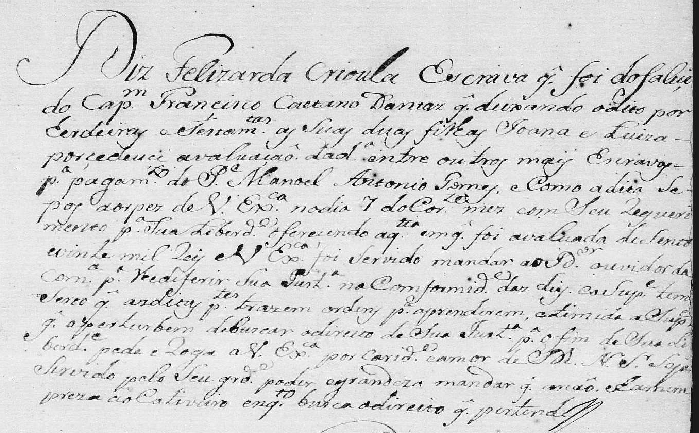 Diz Felizarda Crioula Escrava q. foi do falici
do Cap.m Francisco Caetano Dantaz q. durando odito por
Eerdeiras e testam.tar as Suas duas filhas Joana e Luiza
porcedeuci avaluaiaõ dad.a entre outros mais Escravos
p.a pagam.to do P.e Manoel Antonio e Como adita Se
pos aos pez de V. Ex.ca no dia 7 do Cor.te mez com Seu Requeri
mento p.a Sua Liberd.e oferecendo aq.tia emq. foi avaluada de Sento
evinte mil Reis e V Ex.ca foi Servido mandar ao D.or ouvidor da
Com.ca p.a Sua Just.a na Conformid.e daz Leis e a Sup.e tem
q. as ditas p.tes trazem ordens p.a aprenderem, a Sup.e
q. o perturbem debuscar odireito de Sua Just.a p.a ofim de Sua Li
berd.e pede e Roga a V. Ex.ca por carid.e e amor de D.s N. Sr. Seja
Servido pelo Seu grd.e poder egrandeza mandar q. enaõ
preza ao Cativeiro enq.to busca odireito q. pertende